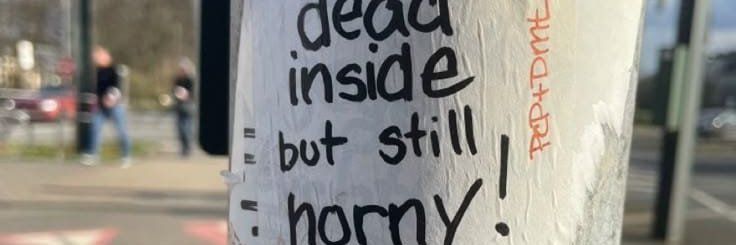 dead
inside
but still
horny!
PCP+DMT